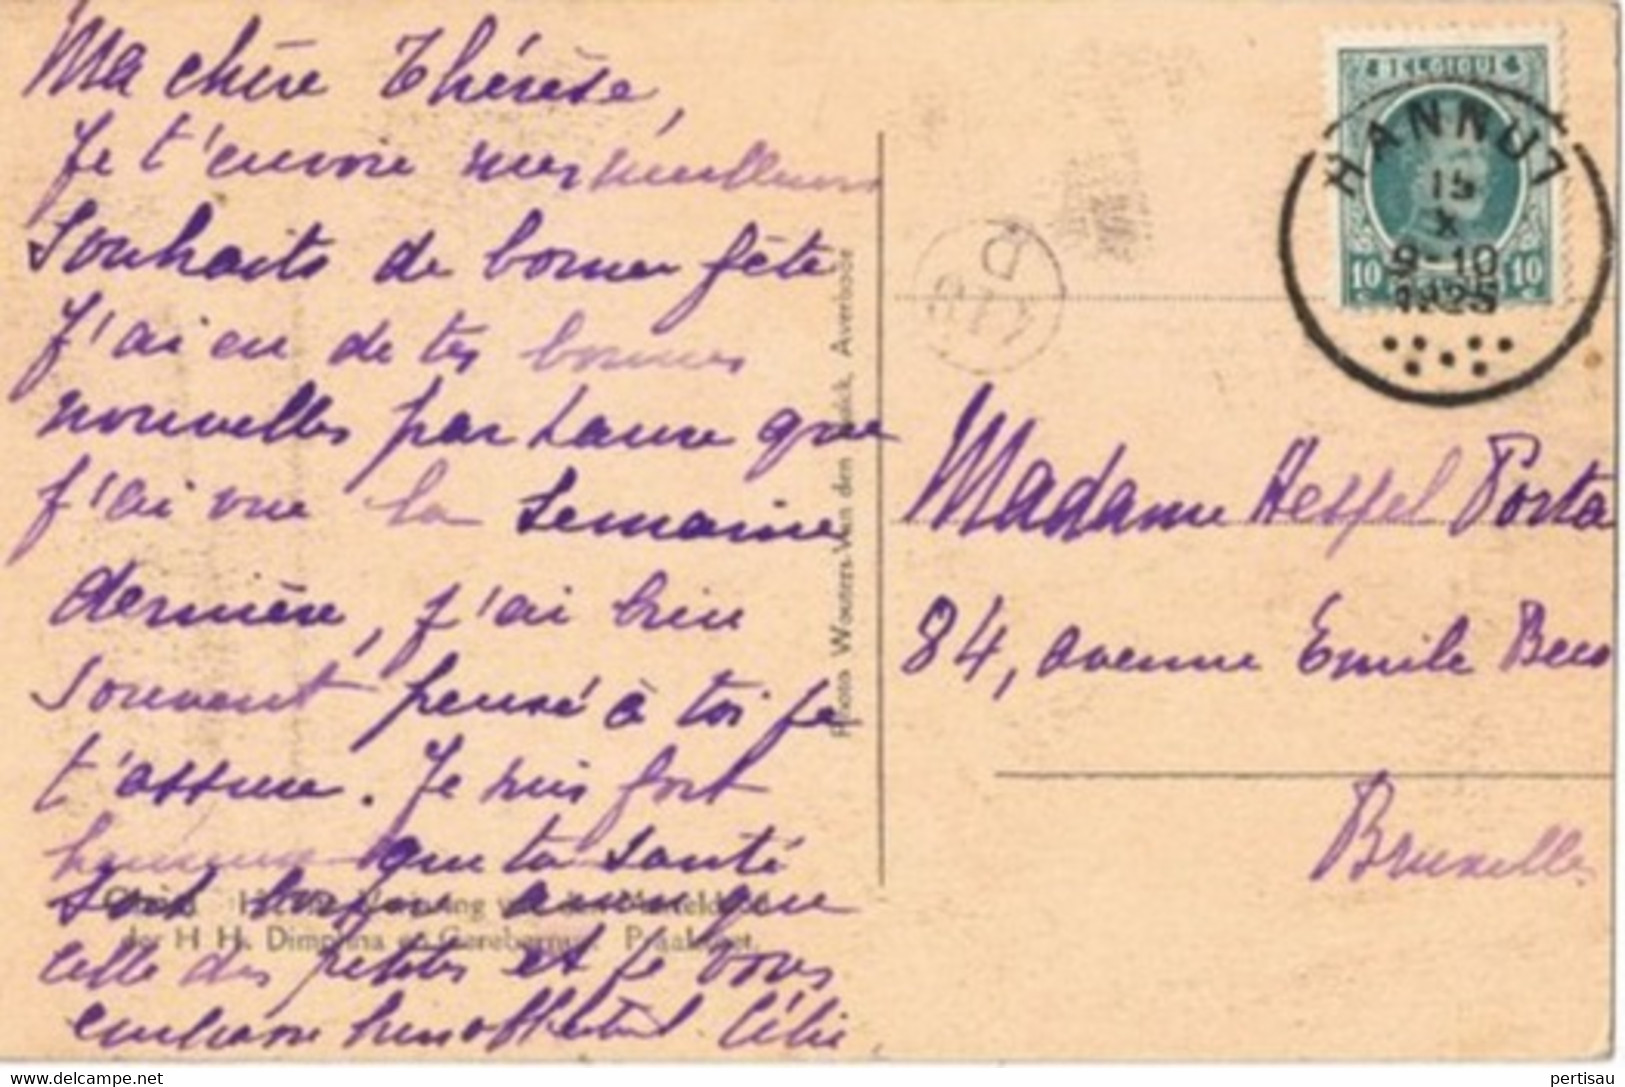 Ma chère Thérèse,
Je t'envoie mes meilleurs
souhaits de bonne fête
J'ai eu de tes bonnes
nouvelles par Laure que
j'ai vue la semaine
dernière, j'ai bien
souvent pensé à toi je
t'assure. Je suis fort
heureuse que ta santé
soit bonne ainsi que
celle des petites et je vous
embrasse bien affect Célie
der H H. Dimphna en Gerebernus. Praalstoet.
Photos Wouters-Van den Averbode
BELGIQUE
10 10
HANNUT
15
X
9-10
1925
Madame Hessel Porta
84, avenue Emile Beco
Bruxelles
pertisau